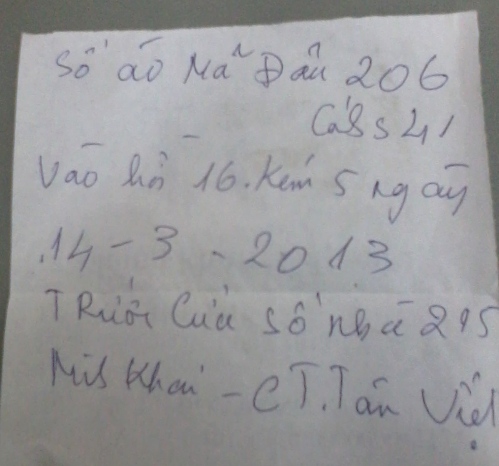 Số áo Mã Đầu 206
S41
Vào hồi 16. kém 5 ngày
.14 - 3 - 2013
Trước Cửa số nhà 295
Khai - CT. Tân Việt